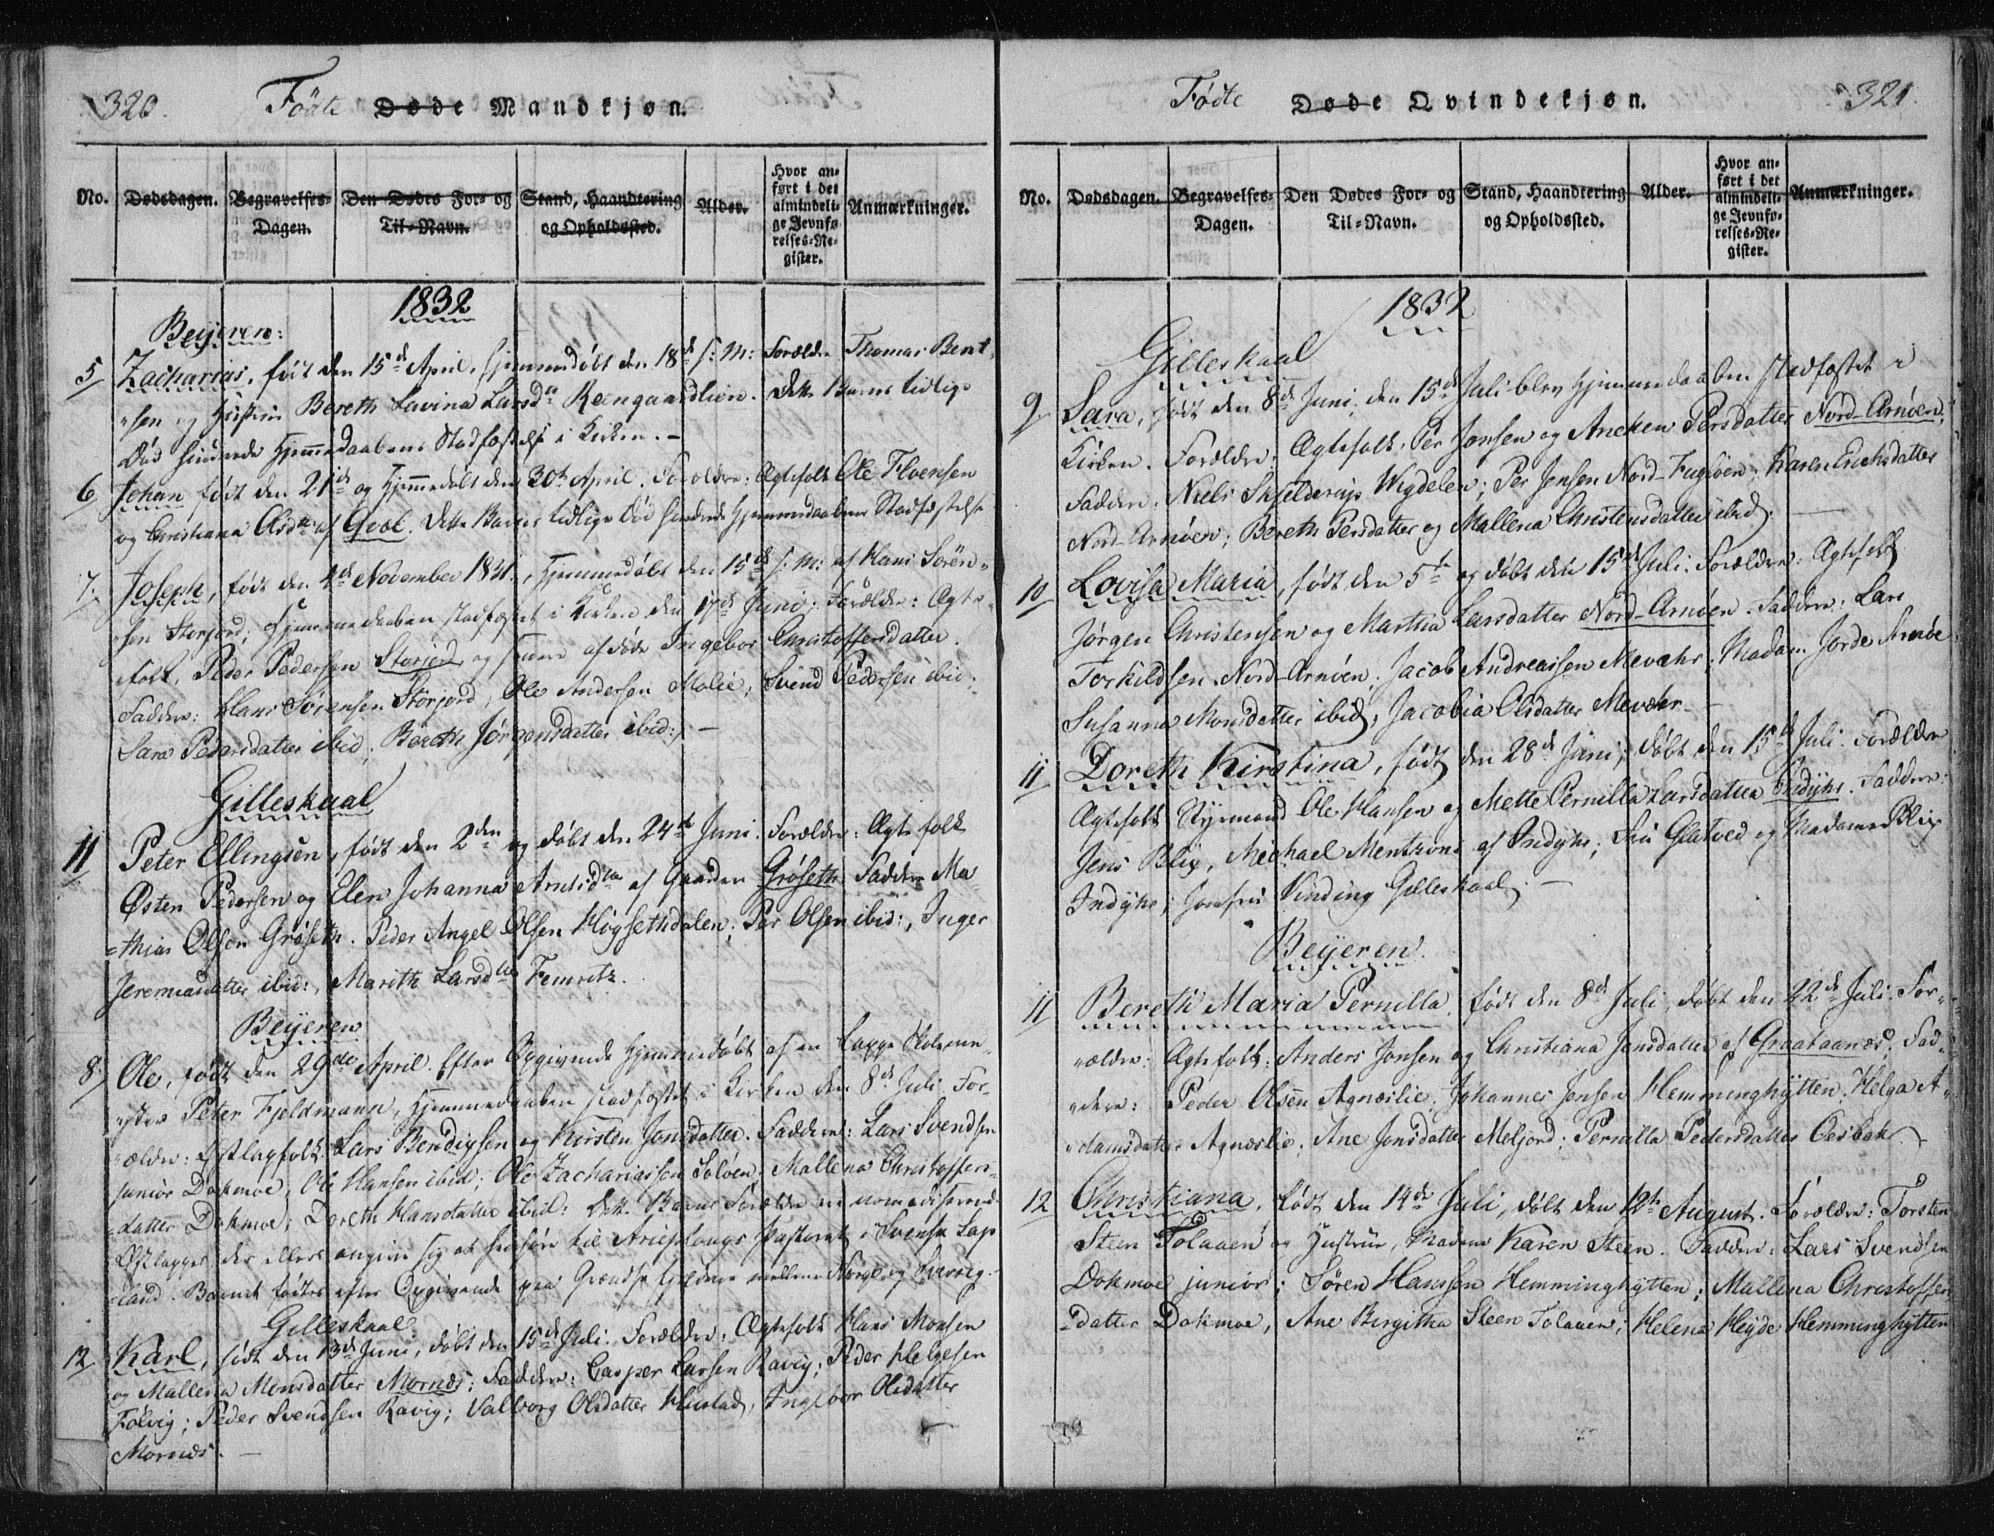 320.
Födte Døde Mandkjøn.
No. Dødsdagen. Begravelses-Dagen. Den Dødes For- og Til-Navn. Stand, Haandtering og Opholdssted. Alder. Hvor anført i det almindelige Jevnførelses-Register. Anmærkninger.
1832
Beijeren:
5 Zacharias, født den 15de April, hjemmedöbt den 18de s: M: Forældre Thomas Bent
sen og Hustru Bereth Lavina Larsdr Reengaardlien. Dette Barns tidlige
Død hindrede Hjemmedaabens Stadfæstelse i Kirken. –
6, Johan født den 21de og Hjemmedøbt den 30te April. Forældre: Ægtefolk Ole Floensen
og Christiana Olsdtr af Gval. Dette Barns tidlige Død hindrede Hjemmedaabens Stadfæstelse
7, Joseph, født den 4de November 1831, Hjemmedøbt den 15de s: M: af Hans Sören-
sen Storjord; Hjemmedaaben stadfæstet i Kirken den 17de Juni. Forældre: Ægte-
folk, Peder Pedersen Storjord og Hustru afdøde Ingebor Christoffersdatter.
Faddere: Hans Sörensen Storjord, Ole Andersen Molie; Svend Pedersen ibid:
Sara Pedersdatter ibid; Bereth Jörgensdatter ibid: –
Gilleskaal
11 Peter Ellingsen, født den 2den og døbt den 24de Juni. Forældre: Ægtefolk
Østen Pedersen og Elen Johanna Arntsdtr af Gaarden Gröseth. Faddere Ma-
thias Olsen Gröseth. Peder Angel Olsen Högsethdalen; Per Olsen ibid:, Inger
Jeremiasdatter ibid:, Mareth Larsdtr Femretz.
Beijeren
8, Ole, født den 29de April. Efter Opgivende Hjemmedøbt af en Lappe Skolemes-
ster Peter Fjeldmann, Hjemmedaaben stadfæstet i Kirken den 8de Juli. For-
ældre: Østlapfolk Lars Bendigsen og Kirsten Jonsdatter. Faddere: Lars Svendsen
junior Dokmoe, Ole Hansen ibid; Ole Zachariassen Soløen; Mallena Christoffers-
datter Dokmoe; Doreth Hansdatter ibid: Dette Barns Forældre ere nomadiserende
Østlapper der ellers angive sig at henhøre til Arieslougs Pastorat i Svensk Lap-
land. Barnet fødtes efter Opgivende paa Grændse Fjeldene mellem Norge og Sverrig.
Gilleskaal:
12 Karl, født den 13de Juni, døbt den 15de Juli. Forældre: Ægtefolk Hans Monsen
og Mallena Monsdatter Mornæs: Faddere: Casper Larsen Ravig; Peder Helgesen
Følvig; Peder Svendsen Ravig; Valborg Olsdatter Hustad, Ingebor Olsdatter
Mornæs. –
321.
Födte Døde Qvindekjøn.
No. Dødsdagen. Begravelses-Dagen. Den Dødes For- og Til-Navn. Stand, Haandtering og Opholdssted. Alder. Hvor anført i det almindelige Jevnførelses-Register. Anmærkninger.
1832
Gilleskaal
9, Sara, født den 8de Juni, den 15de Juli blev Hjemmedaaben stadfæstet i
Kirken. Forældre: Ægtefolk, Per Jonsen og Aneken Persdatter Nord-Arnøen,
Faddere: Niels Skjelderup Wigdelen; Per Jensen Nord-Fugløen; Karen Erichsdatter
Nord-Arnøen; Bereth Persdatter og Mallena Christensdatter ibid.
10 Lovisa Maria, født den 5te og døbt den 15de Juli. Forældre: Ægtefolk
Jørgen Christensen og Martha Larsdatter Nord-Arnøen. Faddere: Lars
Torkildsen Nord-Arnøen; Jacob Andreassen Mevæhr; Madam Jorde Arnöe
Susanna Monsdatter ibid; Jacobia Olsdatter Mevæhr. –
11 Doreth Kirstina, født den 28de Juni, døbt den 15de Juli. Forældre
Ægtefolk Styrmand Ole Hansen og Mette Pernilla Larsdatter Indyhr. Faddere:
Jens Blix, Michael Mentzoni af Indyhr; Fru Glatved og Madame Blix
Indyhr; Jomfru Vinding Gilleskaal. –
Beijeren.
11 Bereth Maria Pernilla, født den 8de Juli, døbt den 22de Juli. For-
ældre: Ægtefolk: Anders Jonsen og Christiana Jonsdatter af Graataanæs; Fad-
dere: Peder Olsen Agnæslie, Johannes Jensen Hemminghytten, Helga A-
damsdatter Agnæslie; Ane Jonsdatter Meljord; Pernilla Pedersdatter Oesbak.
12 Christiana, født den 14de Juli, døbt den 12te August. Forældre: Torsten
Steen Tolaaen og Hustrue, Madam Karen Steen. Faddere: Lars Svendsen
Dokmoe junior; Sören Hanssen Hemminghytten; Mallena Christoffers
datter Dokmoe, Ane Birgitha Steen Tolaaen; Helena Heyde Hemminghytten